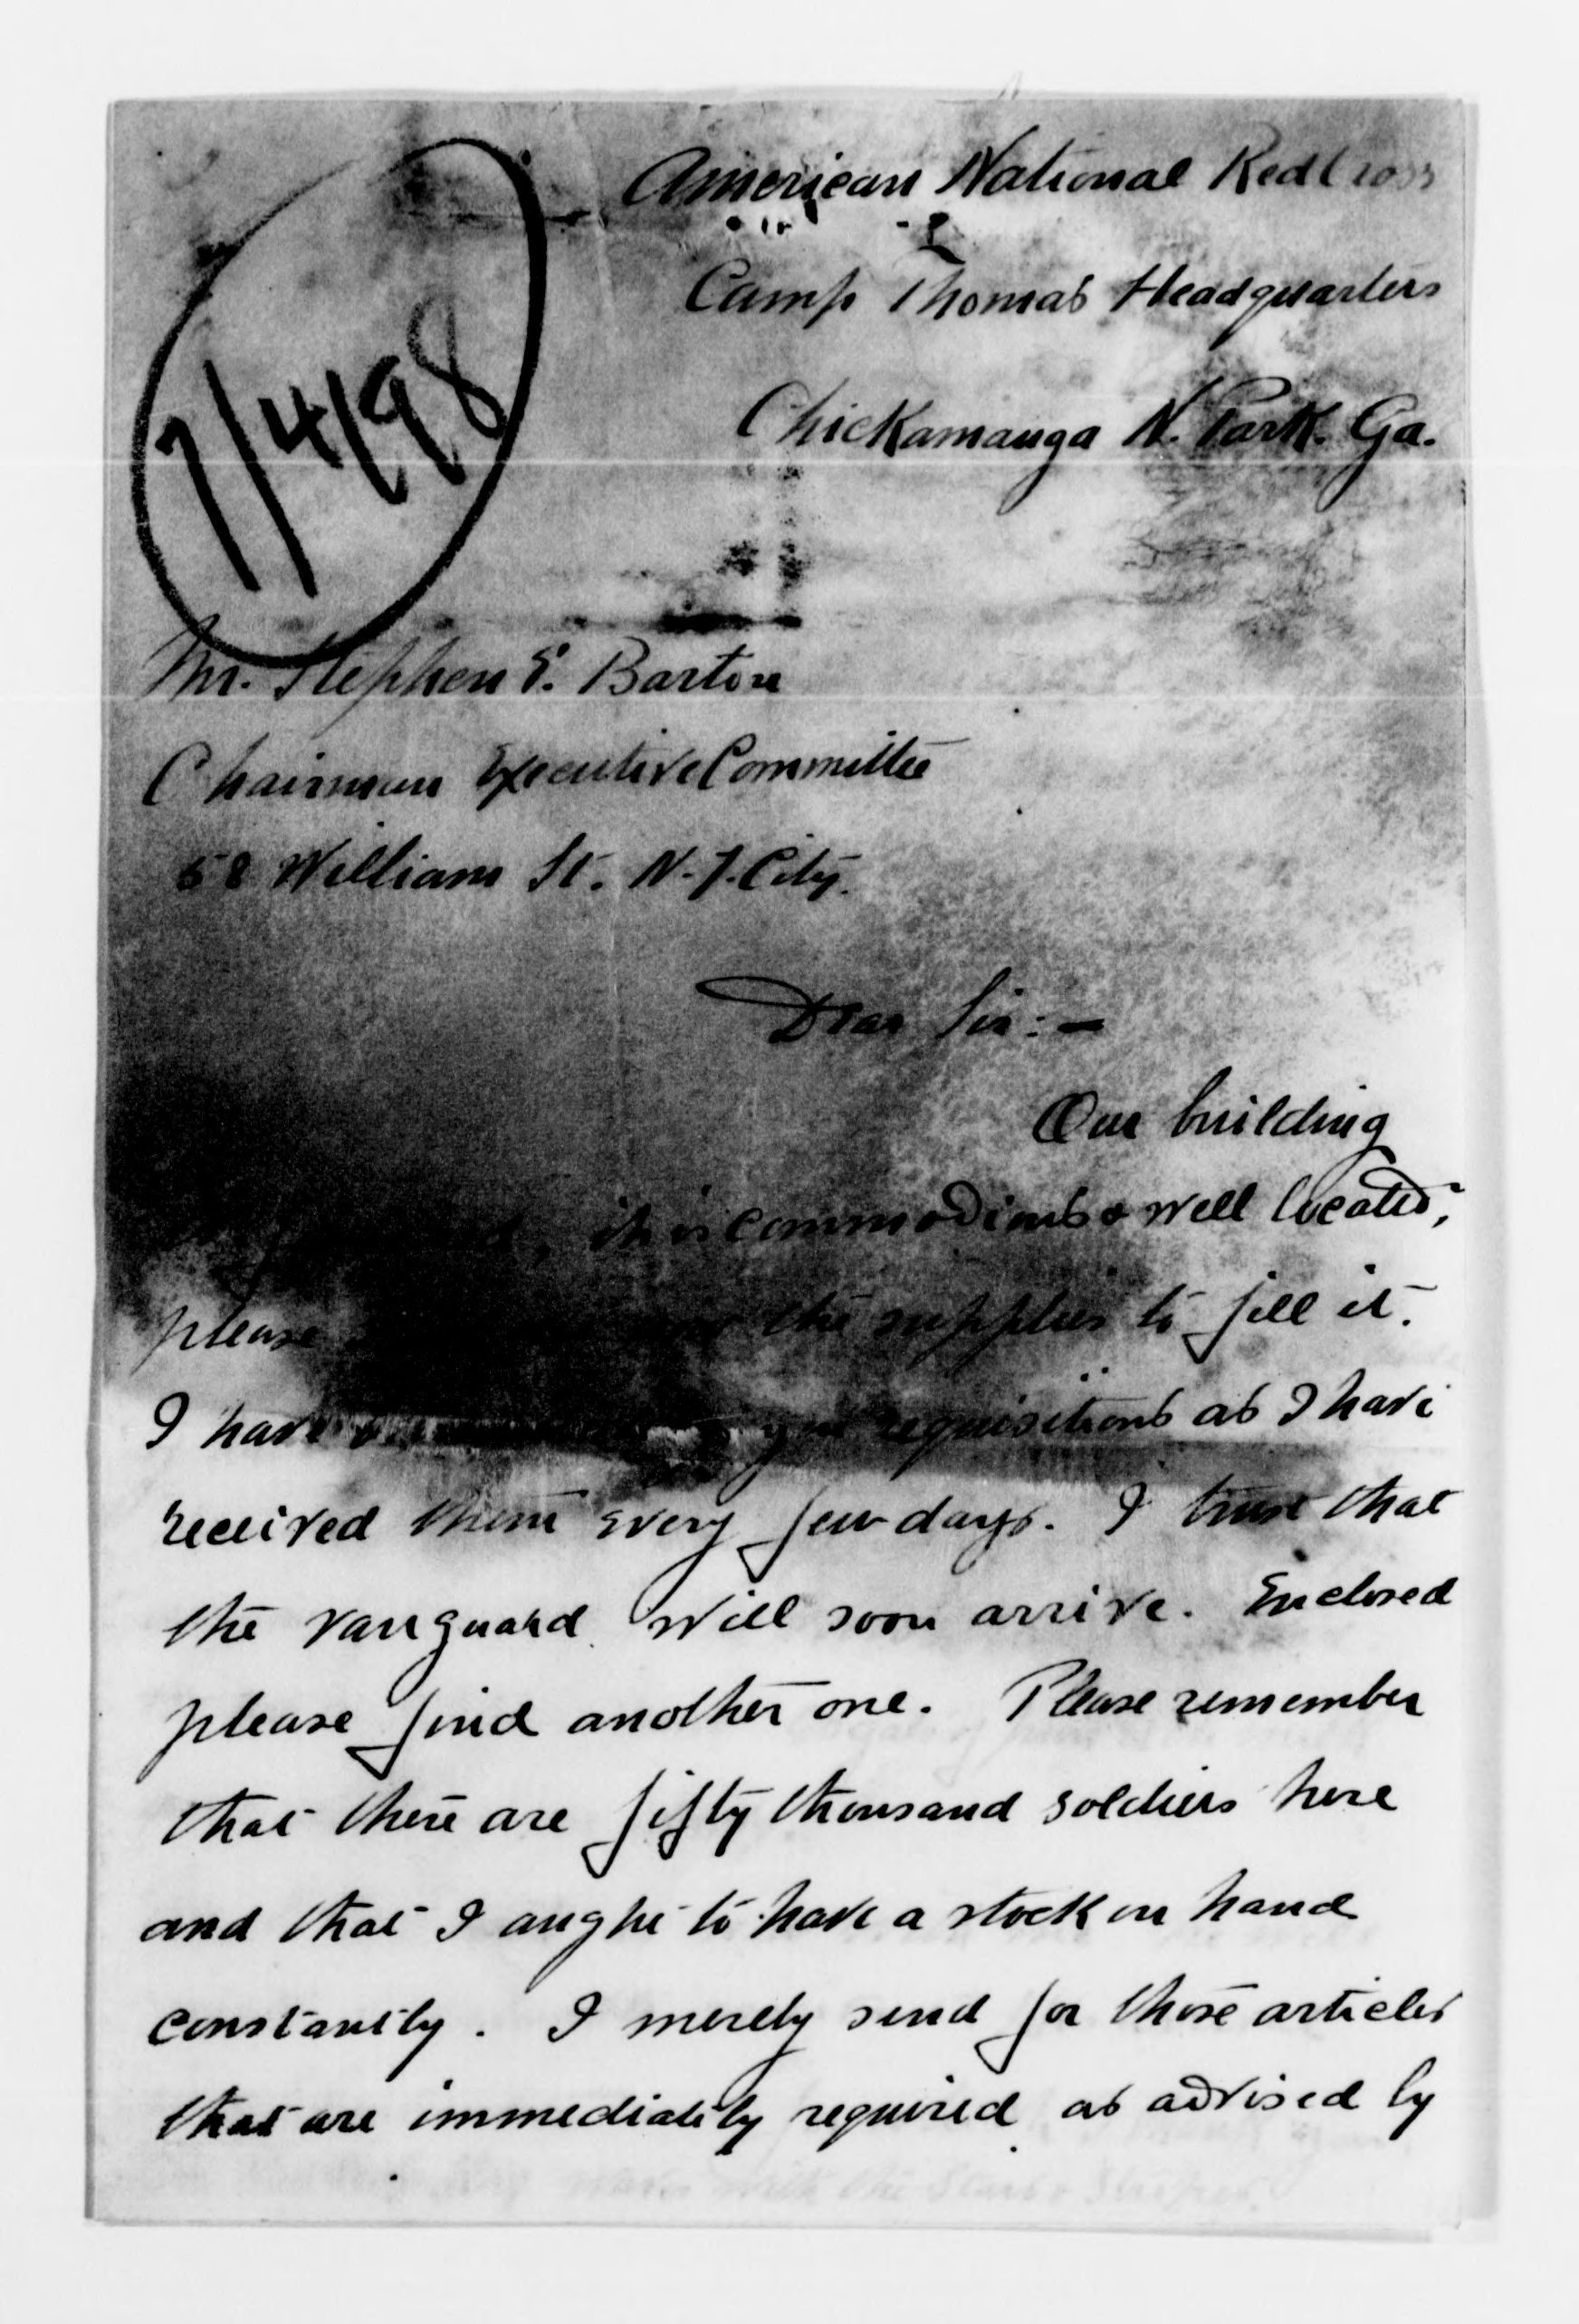 American National Red Cross
Camp Thomas Headquarters
Chickamauga N. Park. Ga.
7/4/98
Mr. Stephen E. Barton
Chairman Executive Committee
58 William St. N.Y. City.
Dear Sir:-
Our building
it is commodious & well located,
please the supplies to fill it.
I have requisitions as I have
received them every few days. I trust that
the vanguard will soon arrive. Enclosed
please find another one. Please remember
that there are fifty thousand soldiers here
and that I aught to have a stock on hand
constantly. I merely send for those articles
that are immediately required as advised by